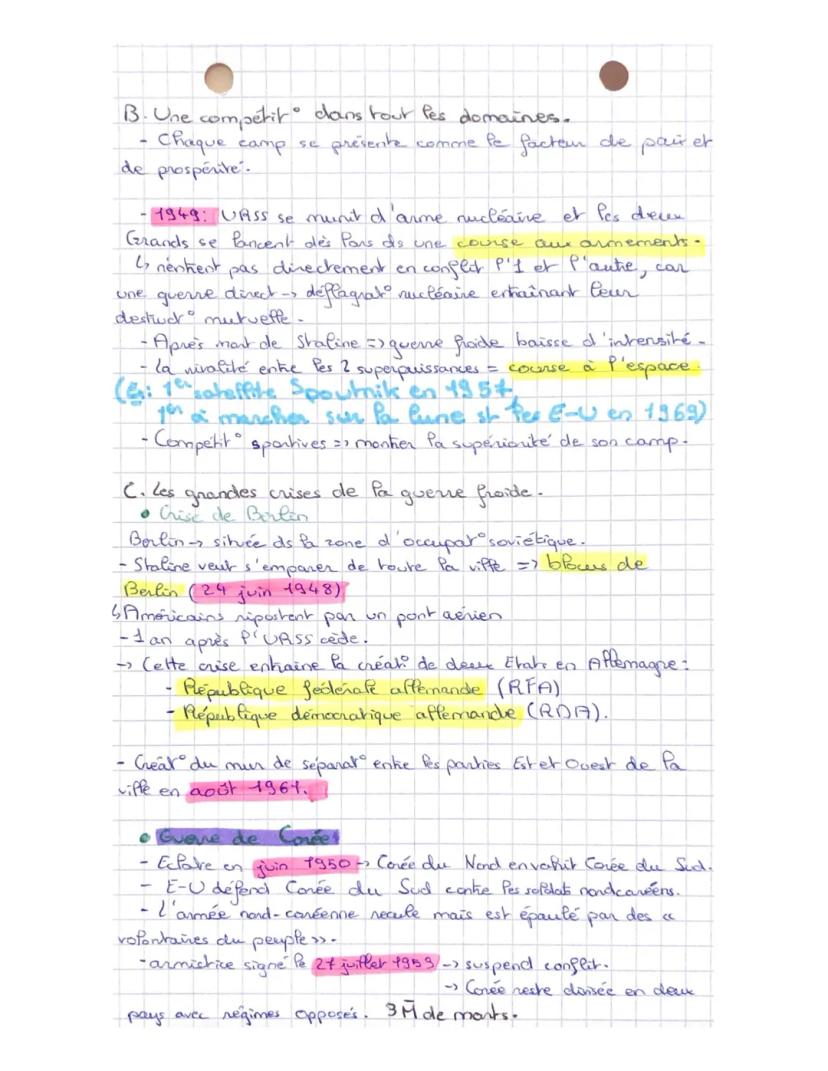 B. Une compétit° dans tout les domaines.
- Chaque camp se présente comme le facteur de paix et
de prospérité.
- 1949: URSS se munit d'arme nucléaire et les deux
Grands se lancent dès lors ds une course aux armements.
↳ n'entrent pas directement en conflit l'1 et l'autre, car
une guerre direct -> déflagrat° nucléaire entraînant leur
destruct° mutuelle.
- Après mort de Staline => guerre froide baisse d'intensité.
- La rivalité entre les 2 superpuissances = course à l'espace.
(Ex: 1er satellite Spoutnik en 1957,
1er à marcher sur la lune st les E-U en 1969)
- Compétit° sportives => montrer la supériorité de son camp.
C. Les grandes crises de la guerre froide.
• Crise de Berlin
Berlin -> située ds la zone d'occupat° soviétique.
- Staline veut s'emparer de toute la ville => blocus de
Berlin (24 juin 1948)
↳ Américains ripostent par un pont aérien
- 1 an après l'URSS cède.
-> Cette crise entraine la créat° de deux Etats en Allemagne:
- République fédérale allemande (RFA)
- République démocratique allemande (RDA).
- Créat° du mur de séparat° entre les parties Est et Ouest de la
ville en août 1961.
• Guerre de Corée
- Eclate en juin 1950 -> Corée du Nord envahit Corée du Sud.
- E-U défend Corée du Sud contre les soldats nordcoréens.
- L'armée nord-coréenne recule mais est épaulé par des «
volontaires du peuple ».
- armistice signé le 27 juillet 1953 -> suspend conflit.
-> Corée reste divisée en deux
pays avec régimes opposés. 3 M de morts.